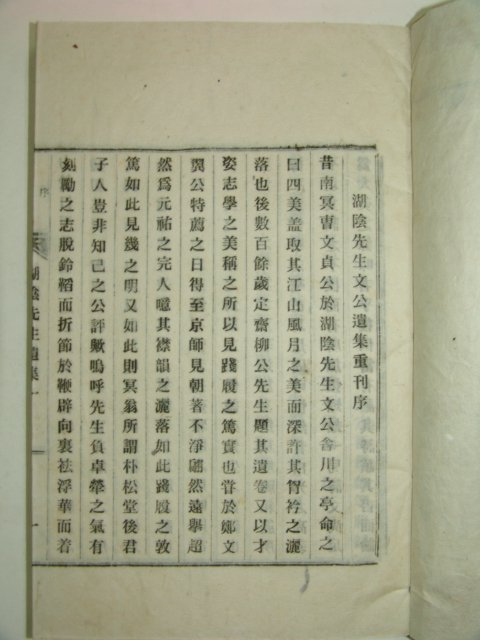 湖陰先生文公遺集重刊序
昔南冥曺文貞公於湖陰先生文公舍川之亭命之
曰四美盖取其江山風月之美而深許其胷衿之灑
落也後數百餘歲定齋柳公先生題其遺卷又以才
姿志學之美稱之所以見踐履之篤實也甞於鄭文
翼公特薦之日得至京師見朝著不淨翩然遠擧超
然爲元祐之完人噫其襟韻之灑落如此踐履之敦
篤如此見幾之明又如此則冥翁所謂朴松堂後君
子人豈非知己之公評歟嗚呼先生負卓犖之氣有
刻勵之志脫鈴韜而折節於鞭辟向裏袪浮華而着
序
湖陰先生遺集
一